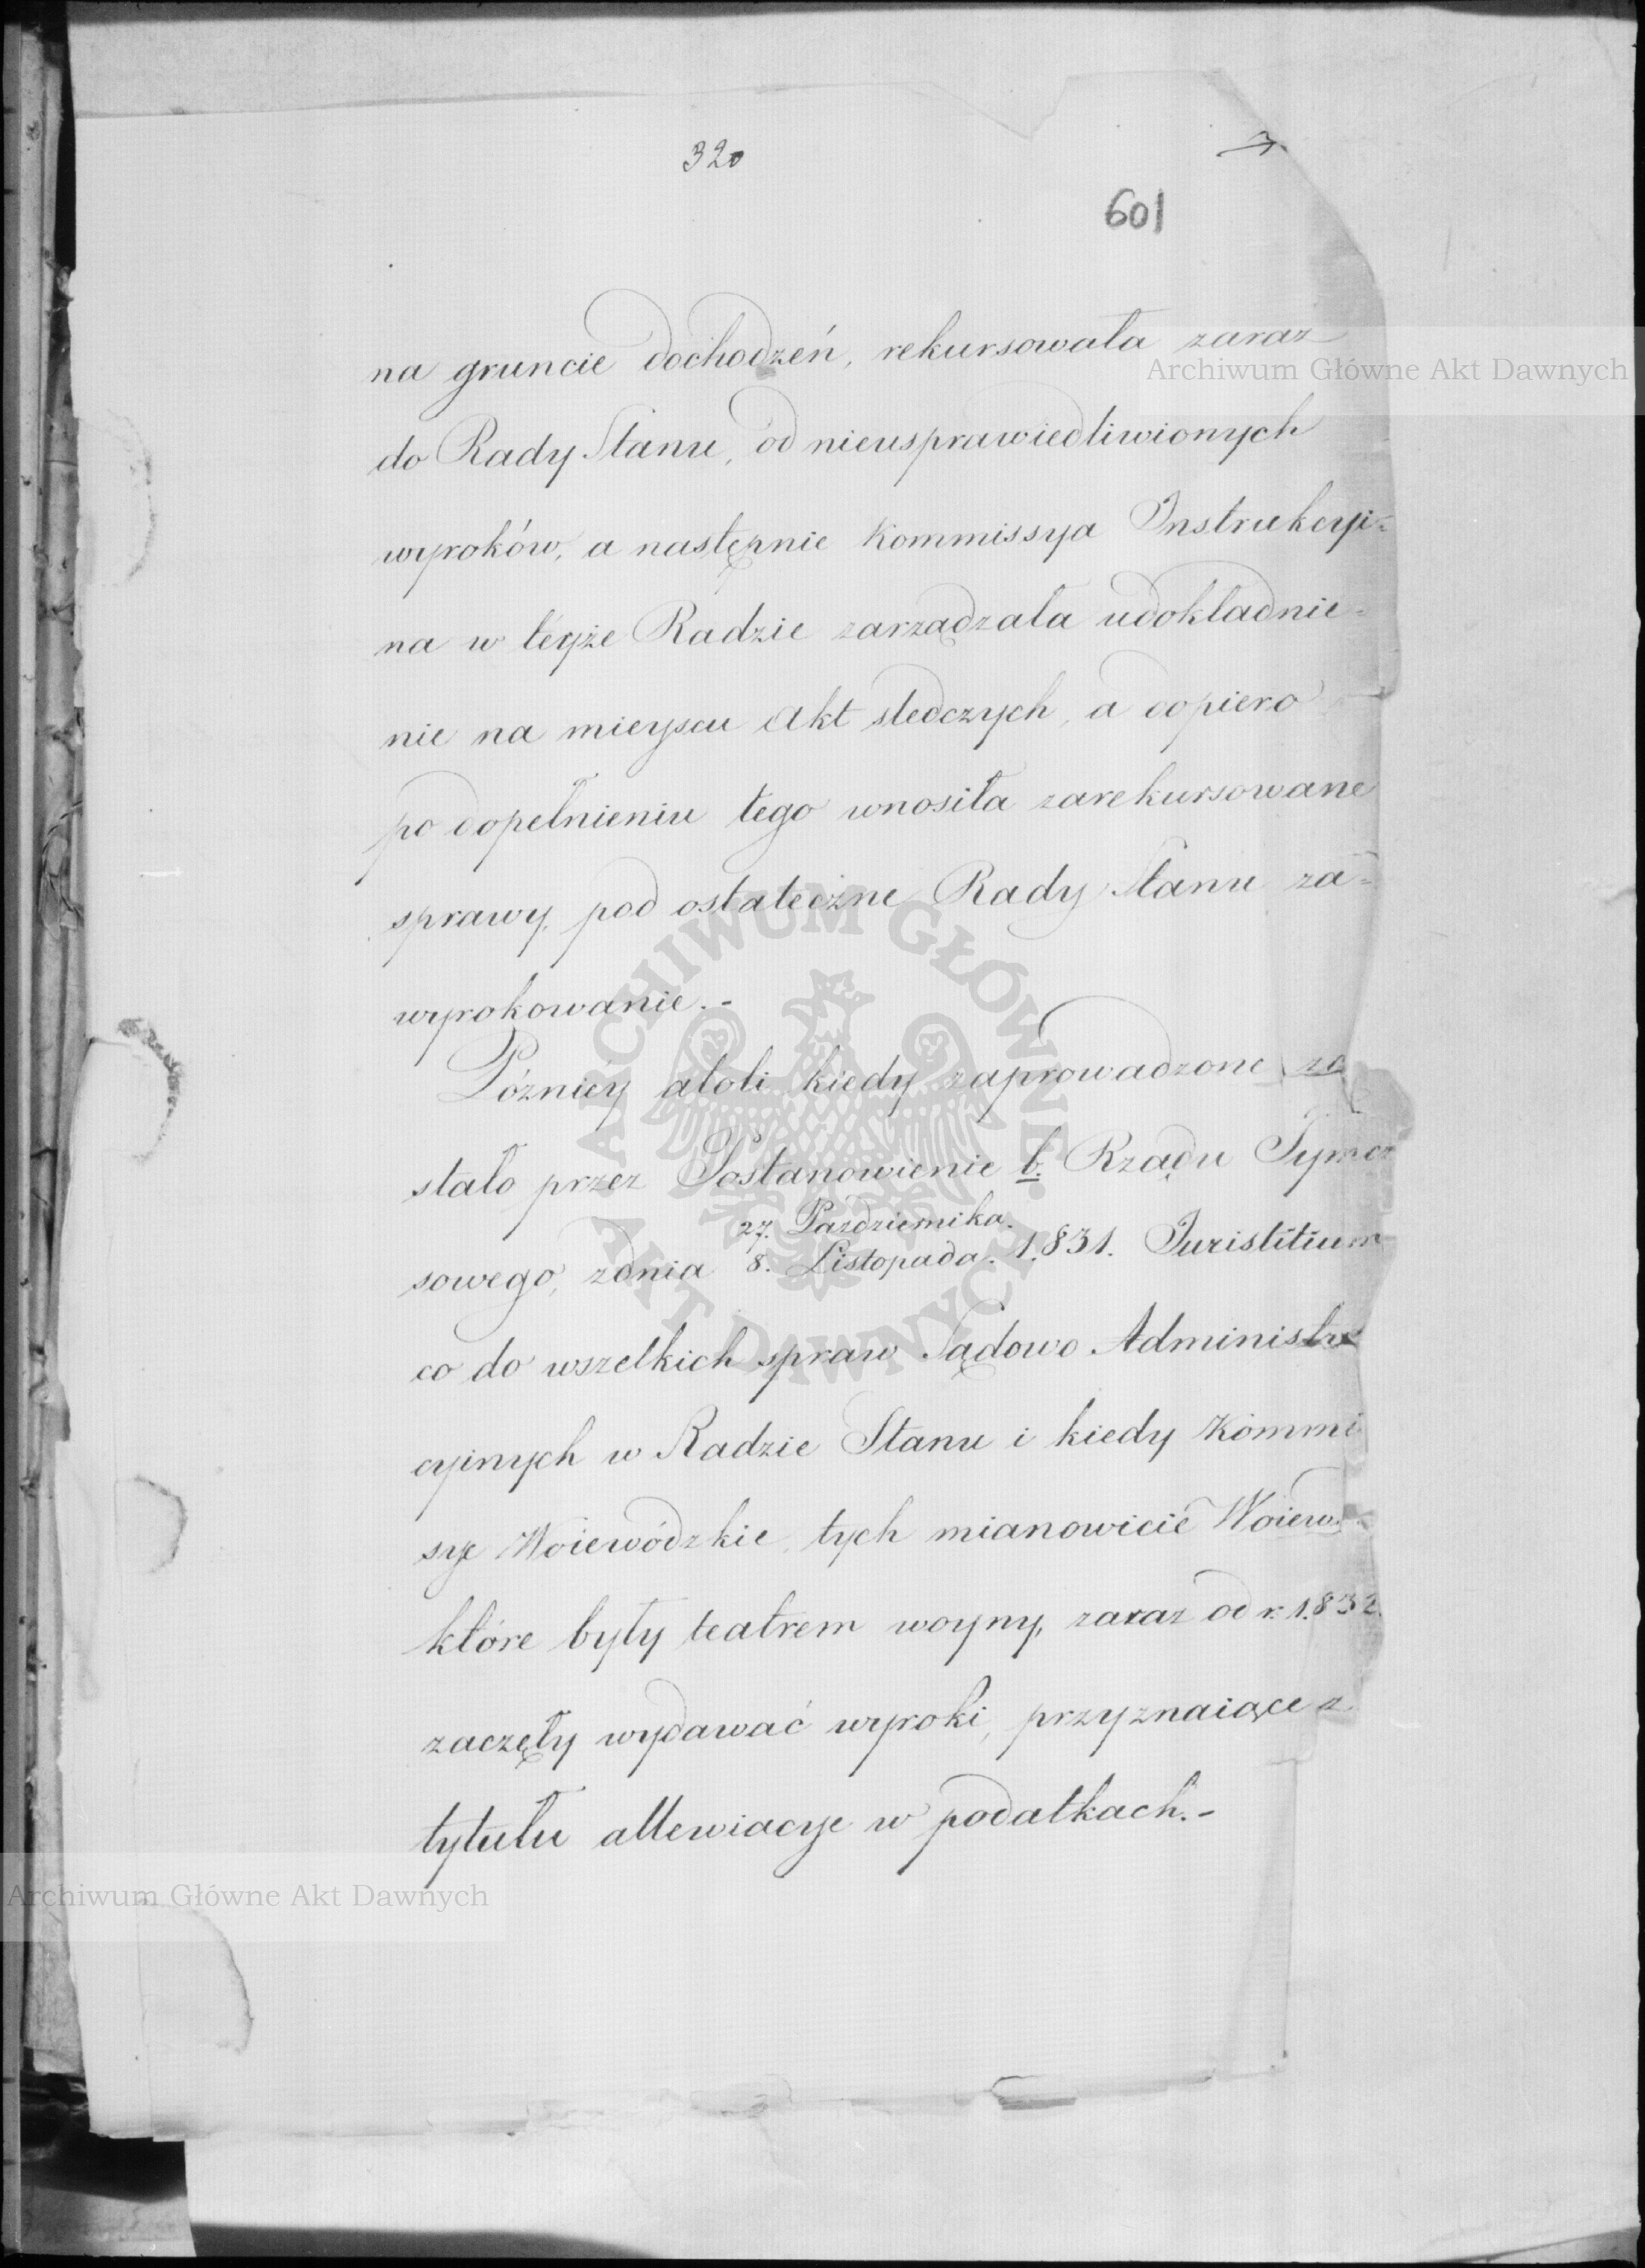 320
7.
601
na gruncie dochodzeń, rekursowała zaraz
do Rady Stanu, od nieusprawiedliwionych
wyroków, a następnie Kommissya Instrukcyi=
na w téyże Radzie zarządzała udokładnie=
nie na mieyscu Akt śledczych, a dopiero
po dopełnieniu tego wnosiła zarekursowane
sprawy, pod ostateczne Rady Stanu za=
wyrokowanie.-
Późniéy atoli kiedy zaprowadzone zo
stało przez Postanowienie b. Rządu Tymcza
27. Października.
sowego, z dnia 8. Listopada. 1831. Juristitium
co do wszelkich spraw Sądowo Administra
cyinych w Radzie Stanu i kiedy Kommi
sye Woiewódzkie, tych mianowicie Woiew.
które były teatrem woyny, zaraz od r. 1832.
zaczęły wydawać wyroki, przyznaiące z
tytułu allewiacye w podatkach.-
Archiwum Główne Akt Dawnych
ARCHIWUM GŁÓWNE AKT DAWNYCH
Archiwum Główne Akt Dawnych